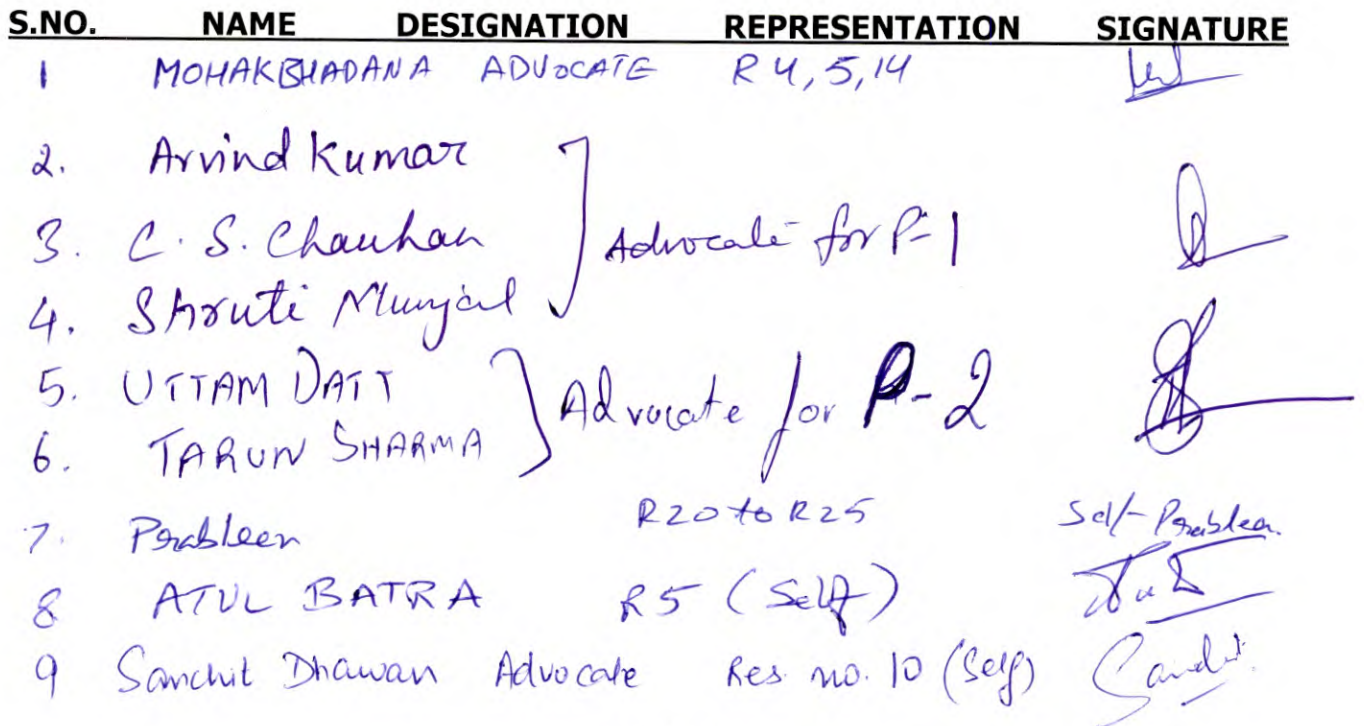 S.NO. NAME DESIGNATION REPRESENTATION SIGNATURE
1 MOHAK BHADANA ADVOCATE R 4,5,14
2. Arvind Kumar
3. C. S. Chauhan Advocate for P-1
4. Shruti Munjal
5. UTTAM DATT Advocate for P-2
6. TARUN SHARMA
7. Prableen R20 to R25 Self- Prableen
8 ATUL BATRA R5 (Self)
9 Sanchit Dhawan Advocate Res. no. 10 (Self)